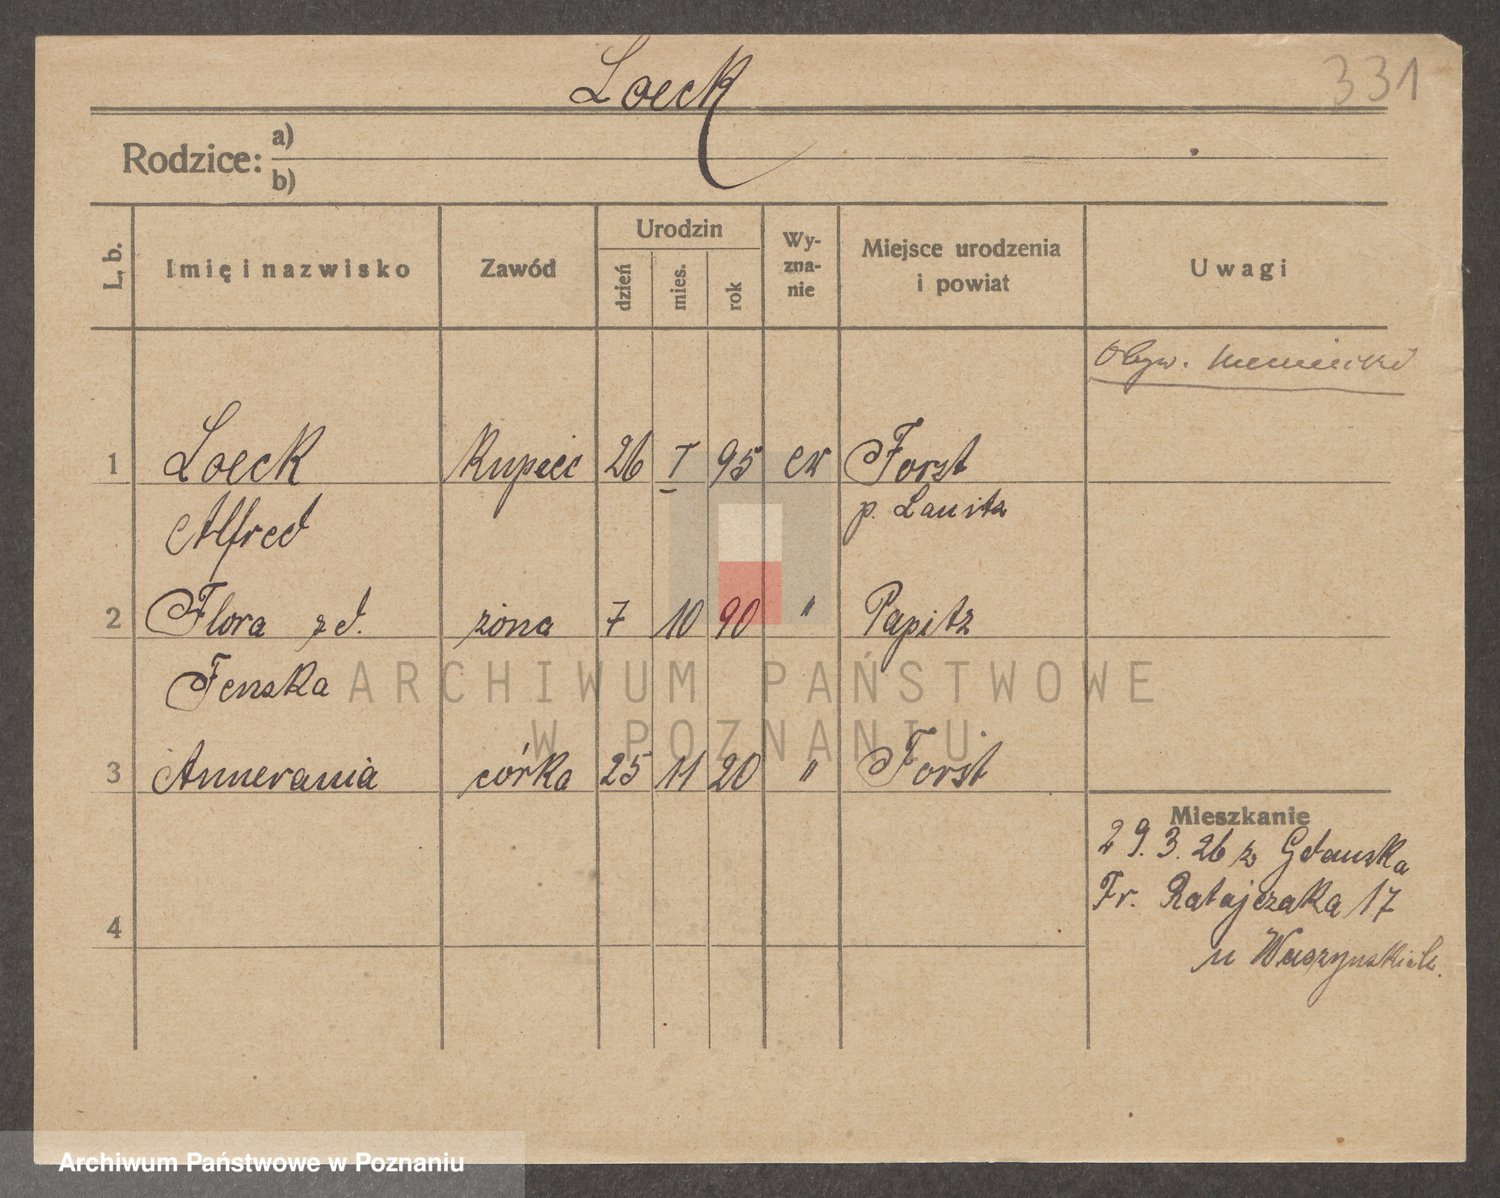 Loeck
331
Rodzice: a)
b)
L. b.
Imię i nazwisko
Zawód
Urodzin
dzień
mies.
rok
Wy-
zna-
nie
Miejsce urodzenia
i powiat
Uwagi
Obyw. niemiecki
1 Loeck Kupiec 26 I 95 ew Forst
Alfred p. Lausitz
2 Flora zd. żona 7 10 90 " Papitz
Fenska
3 Annerania córka 25 11 20 " Forst
Mieszkanie
29.3.26 z Gdańska
Fr. Ratajczaka 17
4
u
ARCHIWUM PAŃSTWOWE
W POZNANIU
Archiwum Państwowe w Poznaniu